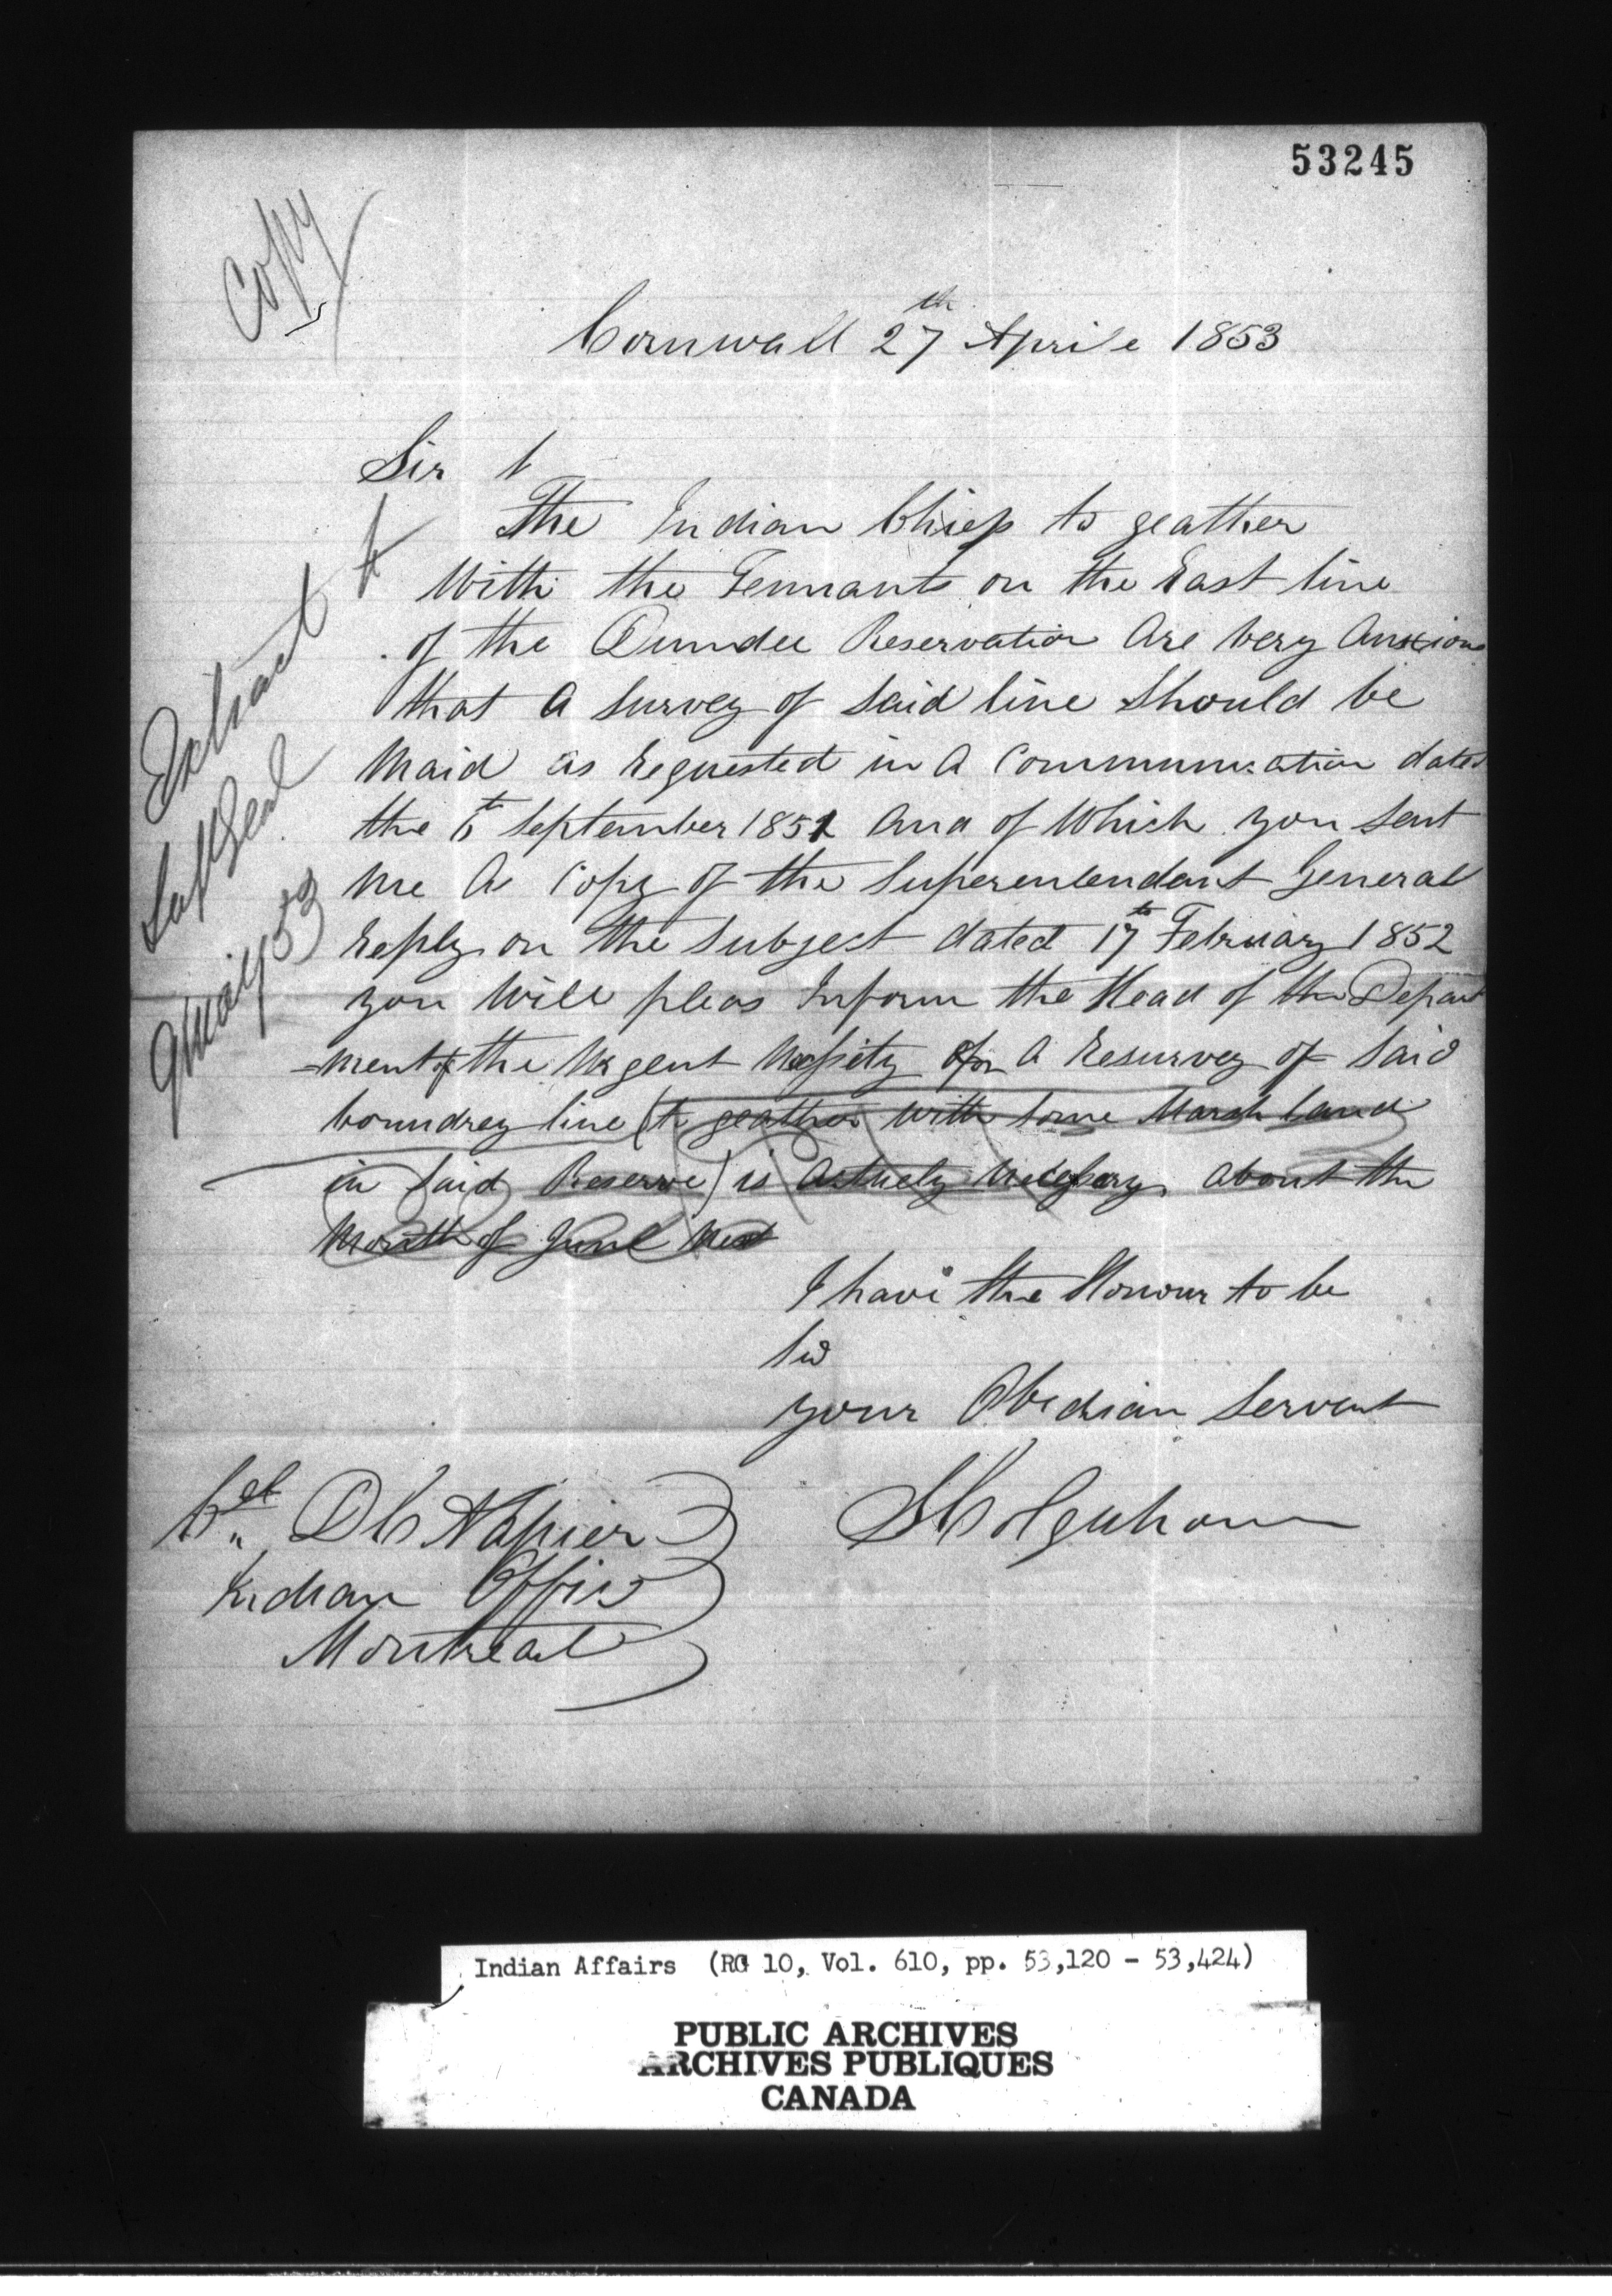 53245
Copy
Cornwall 27th Aprile 1853
Sir
The Indian Chiefs to geather
With the Tennants on the East line
of the Dundee Reservation Are very Anxious
that A survey of said line Should be
Maid as Requested in A Communication dated
the 6th September 1851 And of Which you sent
me A Copy of the Superentendant General
Reply on the Subject dated 17th February 1852
you Will pleas Inform the Head of the Depart
-ment of the Urgent Nessity for A Resurvey of said
boundrey line (to geather with some Marsh land
in said Reserve) is Actuely Necessary about the
Month of June Next
I have the Honour to be
Sir
your Obedian Servent
S Colquhoun
Col. D C Napier
Indian Office
Montreal
Extract to
Supt Genl
9 May 53
Indian Affairs (RG 10, Vol. 610, pp. 53,120 - 53,424)
PUBLIC ARCHIVES
ARCHIVES PUBLIQUES
CANADA